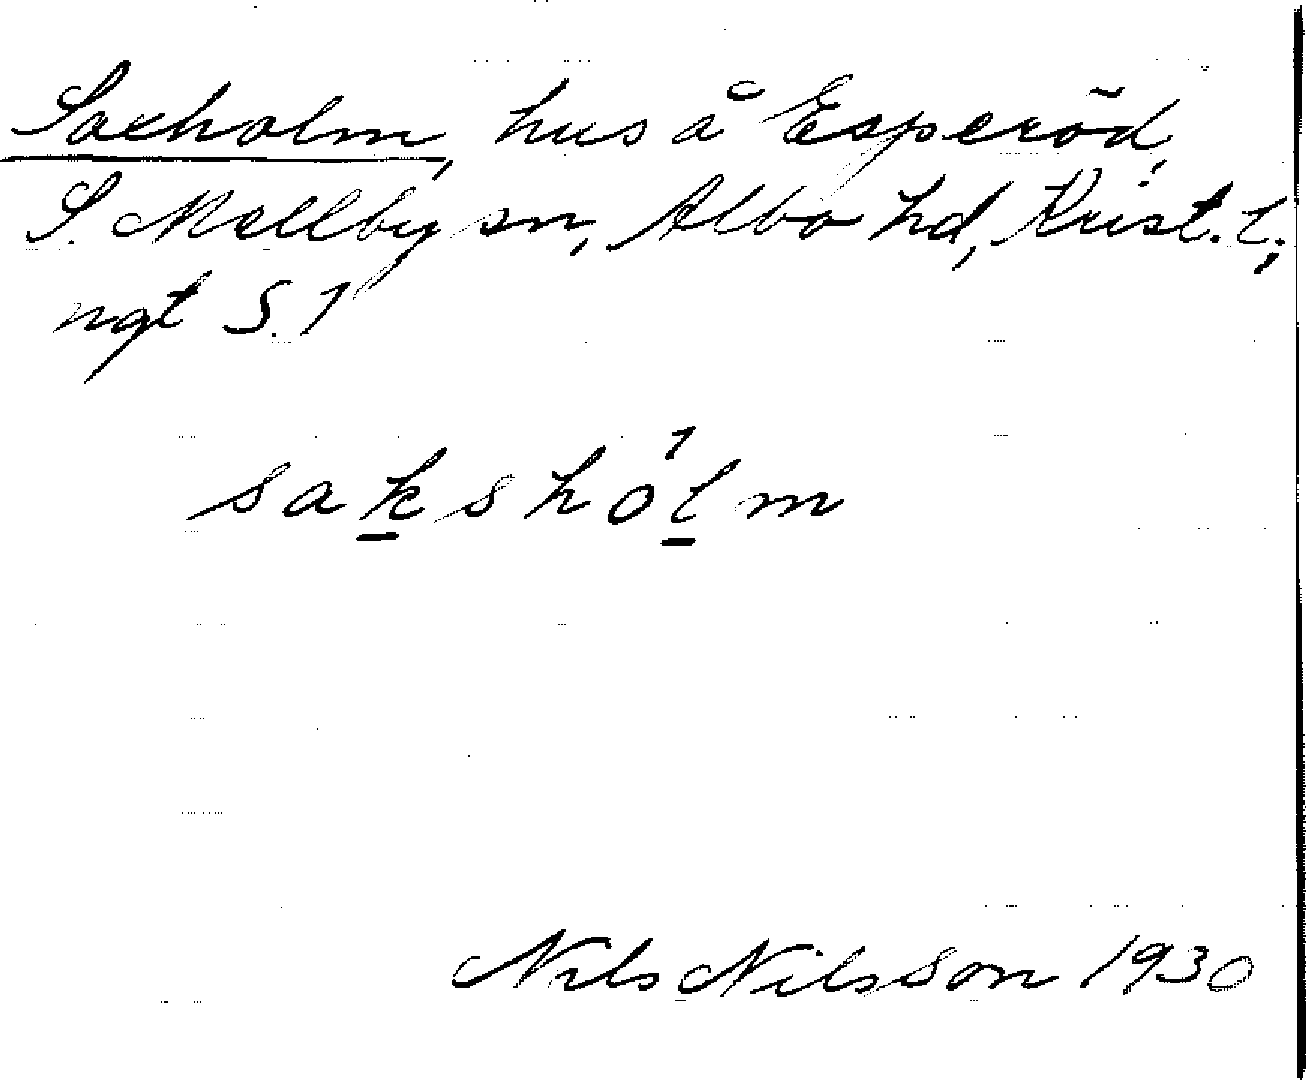 Saxholm, hus å Esperöd,
S. Mellby sn, Albo hd, Krist. l.,
ngt S. 1
saksho1lm
Nils Nilsson 1930